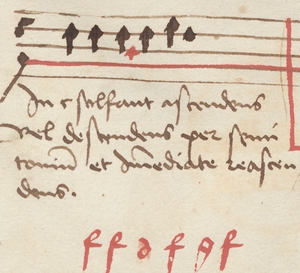 In c solfaut ascendens
vel descendens per semi
toniu et Imediate reascen
dens.
f f d f f